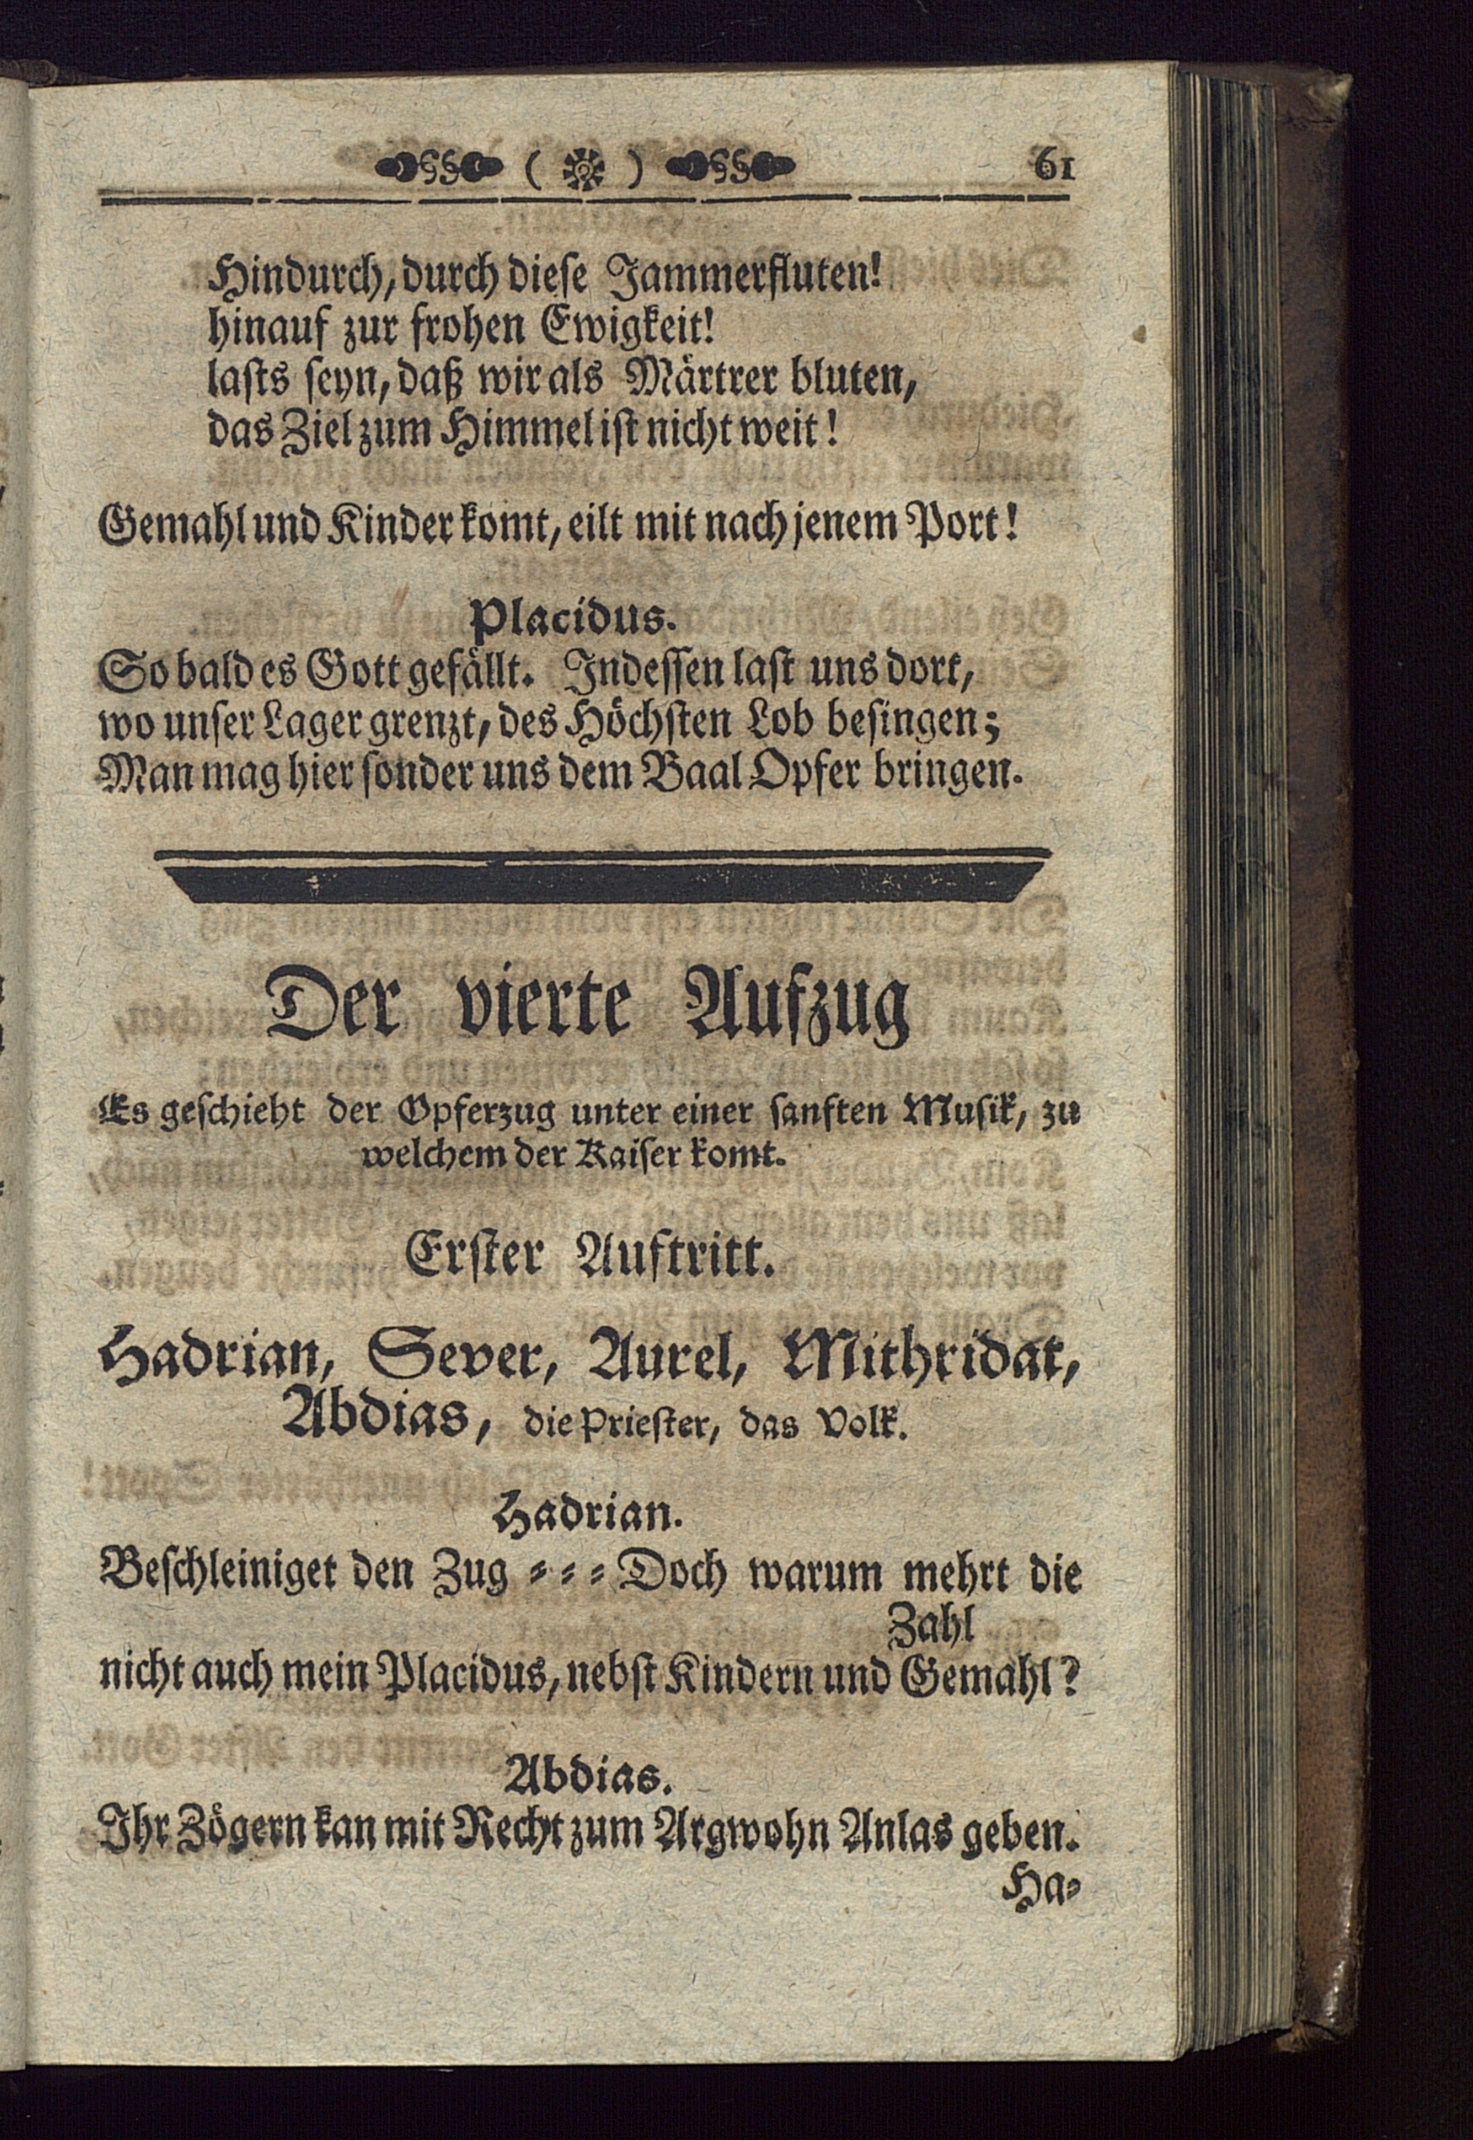 61
Hindurch, durch diese Jammerfluten!
hinauf zur frohen Ewigkeit!
lasts seyn, daß wir als Märtrer bluten,
das Ziel zum Himmel ist nicht weit!
Gemahl und Kinder komt, eilt mit nach jenem Port!
Placidus.
So bald es Gott gefällt. Indessen last uns dort,
wo unser Lager grenzt, des Höchsten Lob besingen;
Man mag hier sonder uns dem Baal Opfer bringen.
Der vierte Aufzug
Es geschieht der Opferzug unter einer sanften Musik, zu
welchem der Kaiser komt.
Erster Auftritt.
Hadrian, Sever, Aurel, Mithridat,
Abdias, die Priester, das Volk.
Hadrian.
Beschleiniget den Zug = = = Doch warum mehrt die
Zahl
nicht auch mein Placidus, nebst Kindern und Gemahl?
Abdias.
Ihr Zögern kan mit Recht zum Argwohn Anlas geben.
Ha=